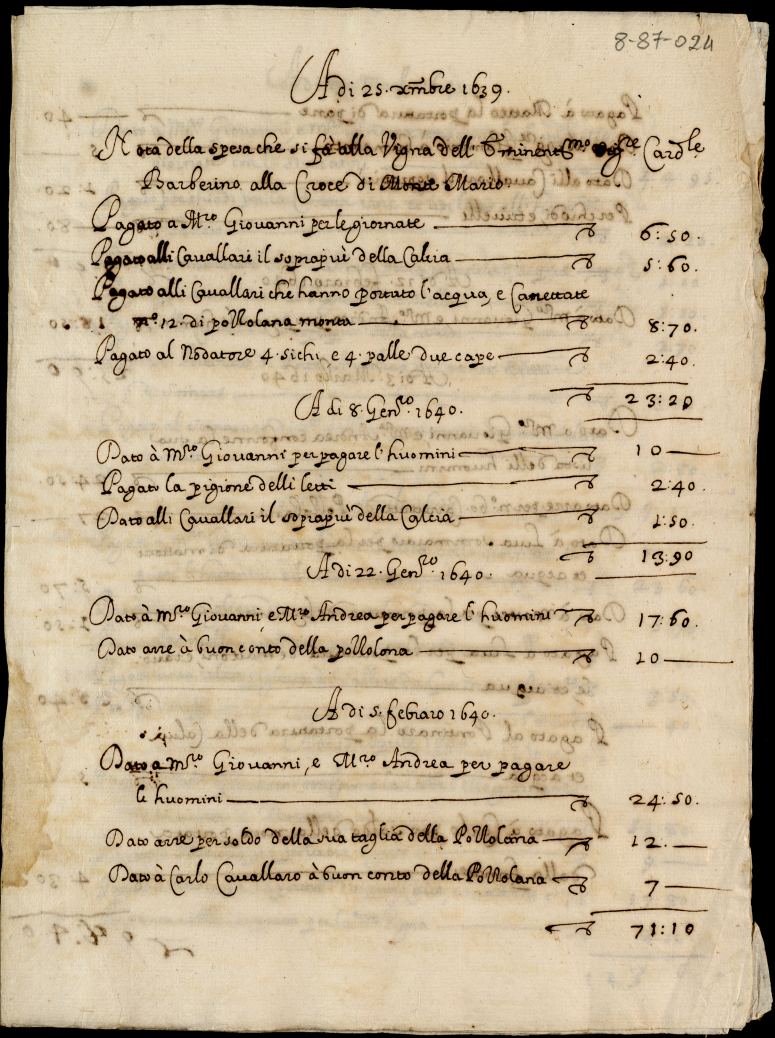 8-87-024
A di 25. xmbre 1639.
Nota della spesa che si fà alla Vigna dell' Eminentmo Sigre Cardle
Barberino alla Croce di Monte Mario
Pagato a Mro Giovanni per le giornate ▽ 6:50.
Pagato alli Cavallari il soprapiù della Calcia ▽ 5:60.
Pagato alli Cavallari che hanno portato l'acqua, e Canettate
no 12. di pozzolana monta ▽ 8:70.
Pagato al Nodatore 4. sichi, e 4. palle due cape ▽ 2:40.
▽ 23:20
A di 8. Genro 1640.
Dato à Mro Giovanni per pagare l'huomini ▽ 10
Pagato la pigione delli letti ▽ 2:40.
Dato alli Cavallari il soprapiù della Calcia ▽ 1:50.
▽ 13:90
A di 22. Genro 1640.
Dato à Mro Giovanni, e Mro Andrea per pagare l'huomini ▽ 17:60.
Dato arre à buon conto della pozzolana ▽ 10
A di 5. febraro 1640.
Dato a Mro Giovanni, e Mro Andrea per pagare
li huomini ▽ 24:50.
Dato arre per soldo della sua taglia della Pozzolana ▽ 12.
Dato à Carlo Cavallaro à buon conto della Pozzolana ▽ 7
▽ 71:10